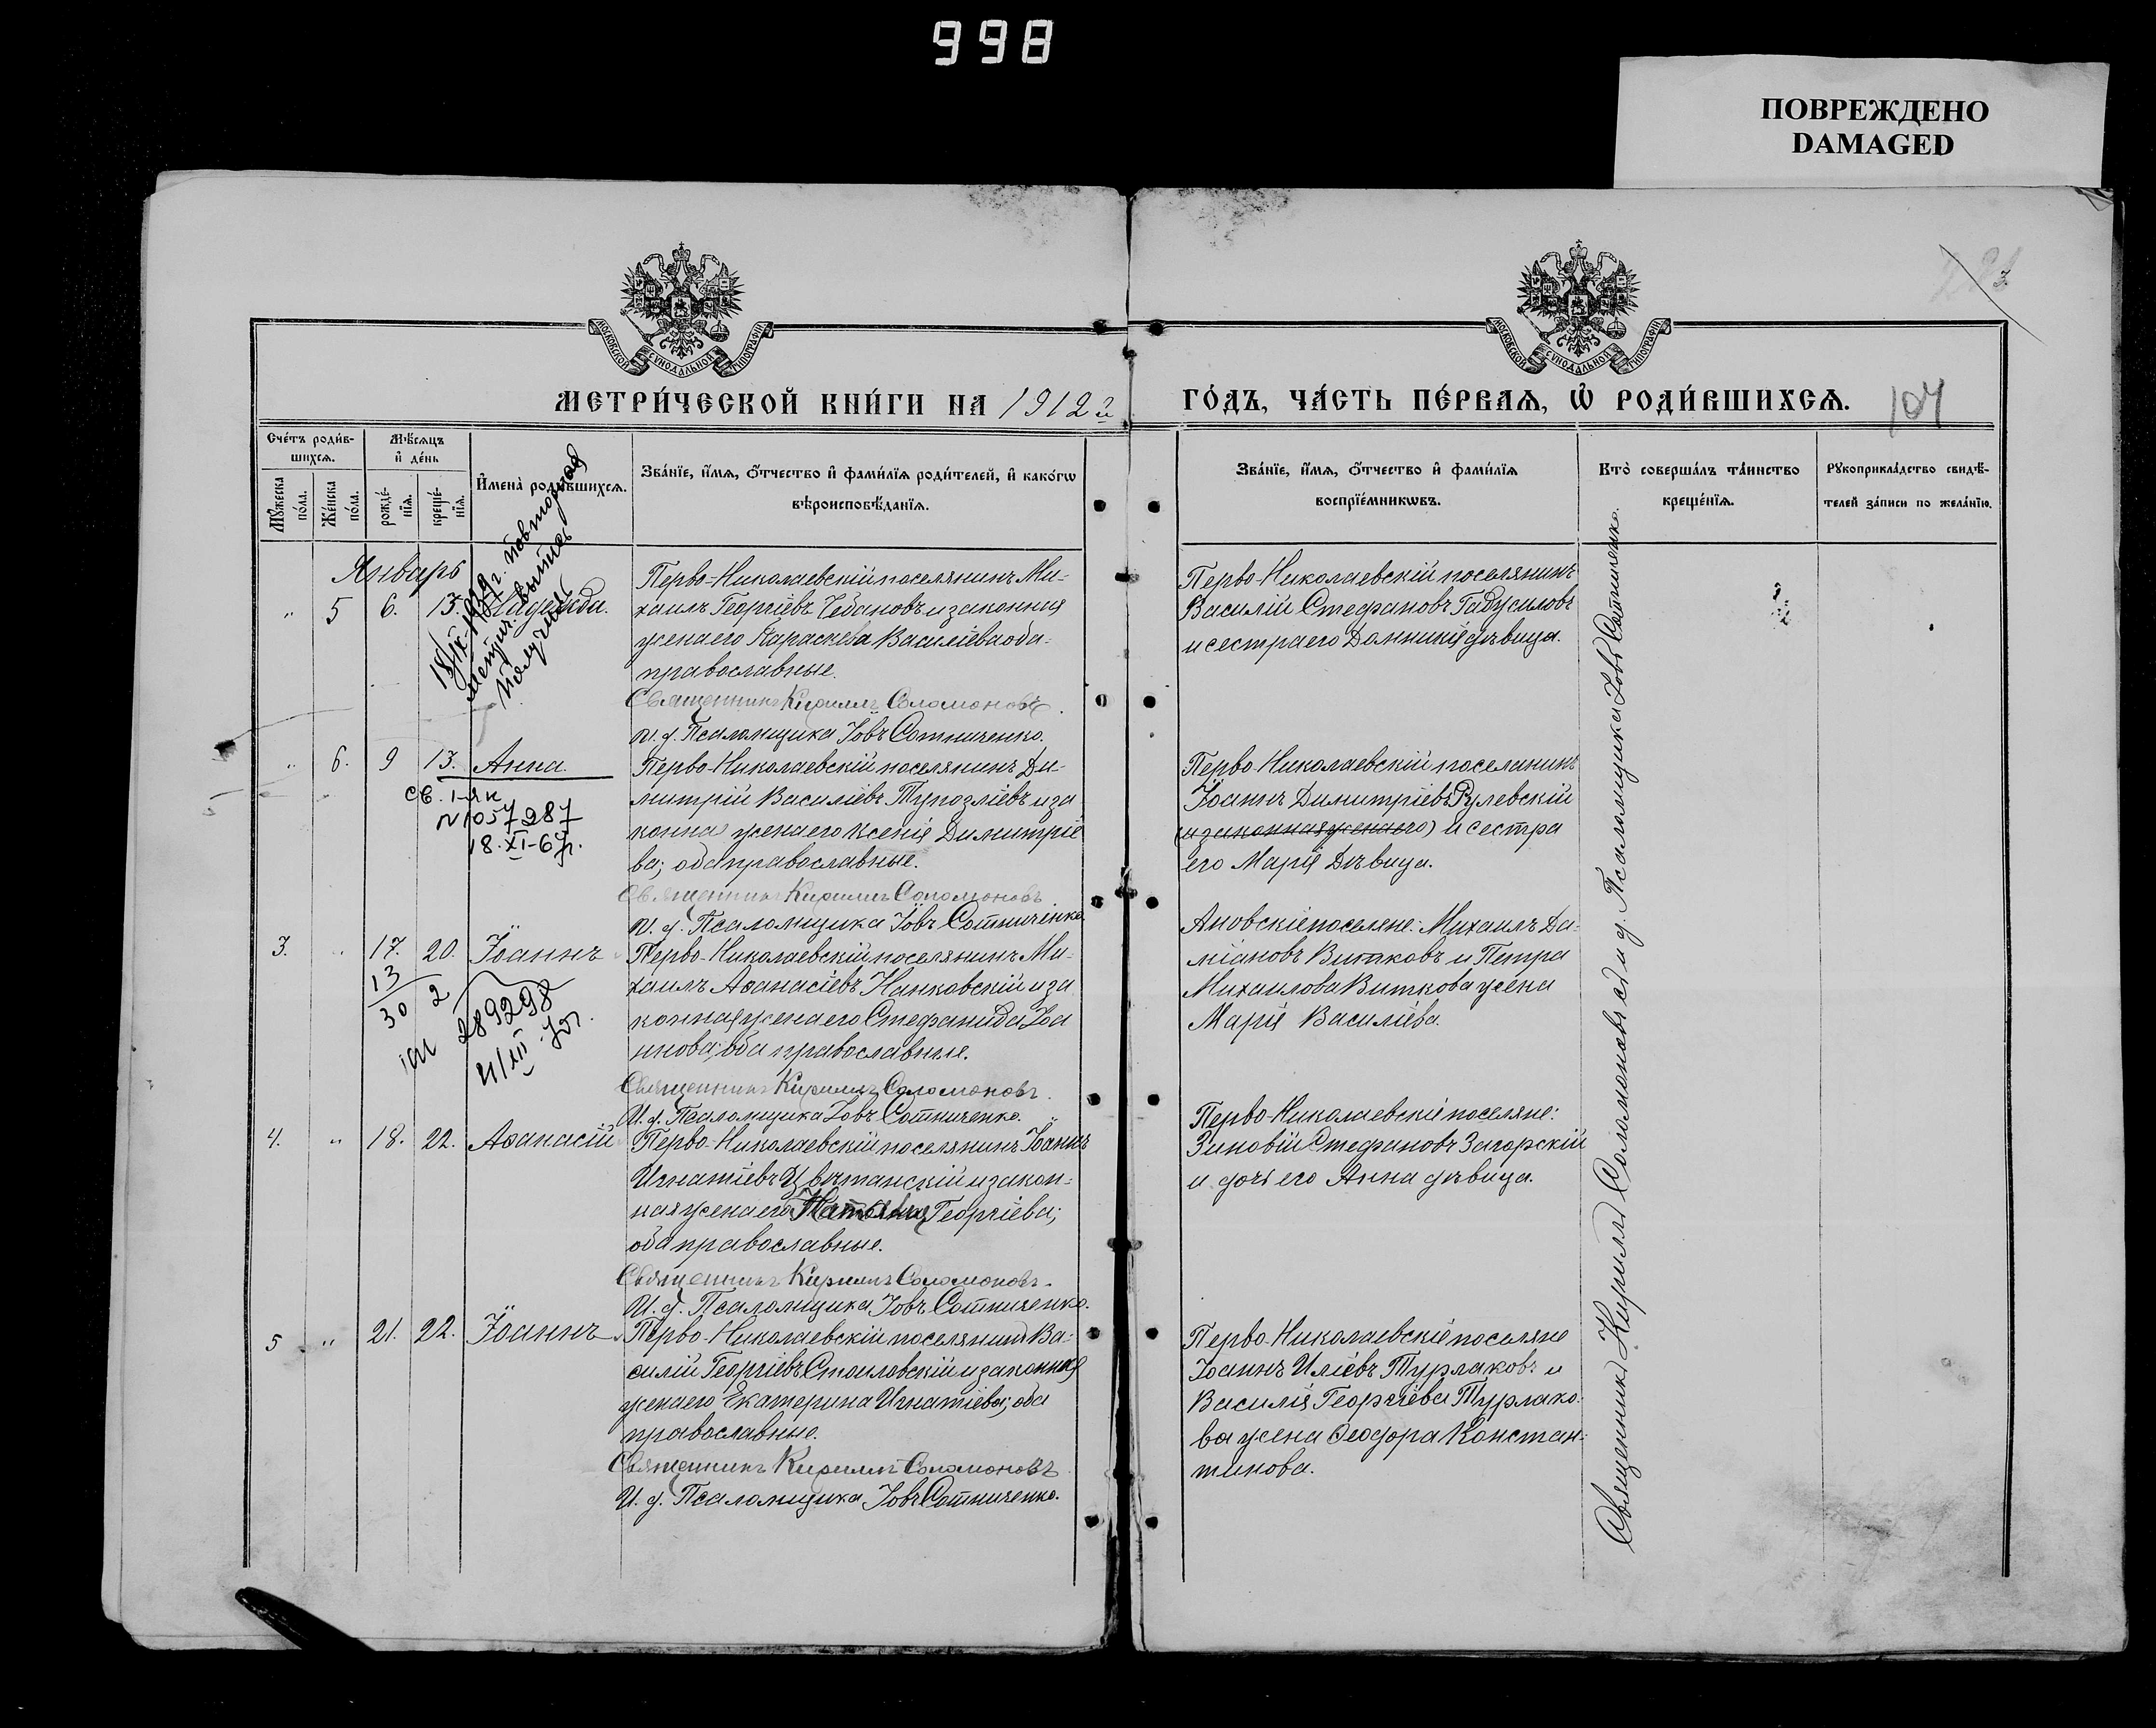 998
ПОВРЕЖДЕНО
DAMAGED
МОСКОВСКОЙ СѴНОДАЛЬНОЙ ТИПОГРАФІИ
МОСКОВСКОЙ СѴНОДАЛЬНОЙ ТИПОГРАФІИ
МЕТРИ́ЧЕСКОЙ КНИ́ГИ НА 1912 г
ГО́ДЪ, ЧА́СТЬ ПЕ́РВАѦ, Ѡ҆ РОДИ́ВШИХСѦ.
104
Сче́тъ роди́в-
шихсѧ.
Мѣ́сѧцъ
и҆ де́нь
Мꙋ́жеска
по́ла.
Же́нска
по́ла.
рожде́-
нїѧ.
креще́-
нїѧ.
И҆мена̀ роди́вшихсѧ.
Зва́нїе, и҆́мѧ, ѻ҆́тчество и҆ фами́лїѧ роди́телей, и҆ како́гѡ
вѣроисповѣ́данїѧ.
Зва́нїе, и҆́мѧ, ѻ҆́тчество и҆ фами́лїѧ
воспрїе́мникѡвъ.
Кто̀ соверша́лъ та́инство
креще́нїѧ.
Рꙋкоприкла́дство свидѣ́-
телей за́писи по жела́нїю.
Январь
" 5 6. 13. Надежда.
повторная
метрич. выпись
получил
Перво-Николаевскій поселянинъ Ми-
хаилъ Георгіевъ Чебановъ и законная
жена его Параскева Василіева оба
православные.
Священникъ Кириллъ Соломоновъ.
И. д. Псаломщика Іовъ Сотниченко.
Перво-Николаевскій поселянинъ
Василій Стефановъ Гадуиловъ
и сестра его Домникія дѣвица.
" 6. 9 13. Анна.
св. I-ЯК
N 1057287
18.XI-67г.
Перво-Николаевскій поселянинъ Ди-
митрій Василіевъ Тупозліевъ и за
конная жена его Ксенія Димитріе
ва; оба православные.
Священникъ Кириллъ Соломоновъ.
И. д. Псаломщика Іовъ Сотниченко
Перво-Николаевскій поселянинъ
Іоаннъ Димитріевъ Рулевскій
(и законная жена его) и сестра
его Марія Дѣвица.
3. " 17. 20. Іоаннъ
13
30 2
289298
Перво-Николаевскій поселянинъ Ми-
хаилъ Аѳанасіевъ Нанковскій и за
конная жена его Стефанида Іоа
ннова; оба православные.
Священникъ Кириллъ Соломоновъ.
И. д. Псаломщика Іовъ Сотниченко.
поселяне: Михаилъ Да-
міановъ Витковъ и Петра
Михаилова Виткова жена
Марія Василіева.
4. " 18. 22. Аѳанасій
Перво-Николаевскій поселянинъ Іоаннъ
Игнатіевъ Цвѣтанскій и закон-
ная жена его Георгіева;
оба православные.
Священникъ Кириллъ Соломоновъ.
И. д. Псаломщика Іовъ Сотниченко.
Перво-Николаевскіе поселяне:
Зиновій Стефановъ Загорскій
и дочь его Анна дѣвица.
5 " 21. 22. Іоаннъ
Перво-Николаевскій поселянинъ Ва-
силій Георгіевъ Стоиловскій и законная
жена его Екатерина Игнатіева; оба
православные.
Священникъ Кириллъ Соломоновъ
И. д. Псаломщика Іовъ Сотниченко.
Перво-Николаевскіе поселяне
Іоаннъ Иліевъ Турлаковъ и
Василія Георгіева Турлако-
ва жена Ѳеодора Констан-
тинова.
Священникъ Кириллъ Соломоновъ съ и. д. Псаломщика Іовъ Сотниченко.